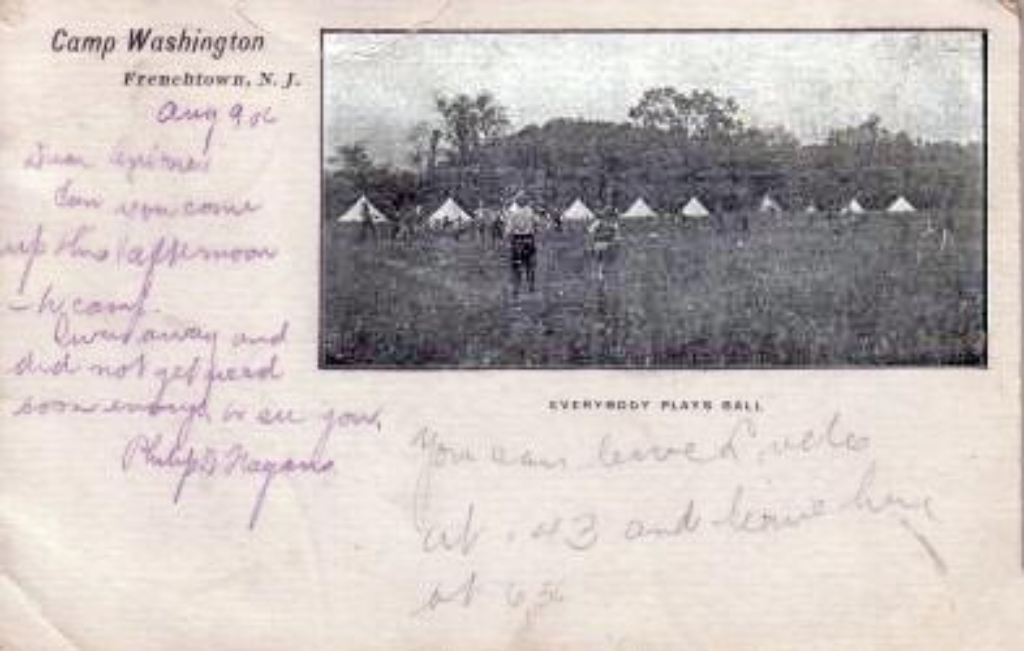 Camp Washington
Frenchtown, N. J.
Aug 9 06
Dear
Can you come
up this afternoon
to camp.
I was away and
did not get word
soon enough to see you.
Philip S Nagans
EVERYBODY PLAYS BALL
You can leave
at 43 and leave here
at 6